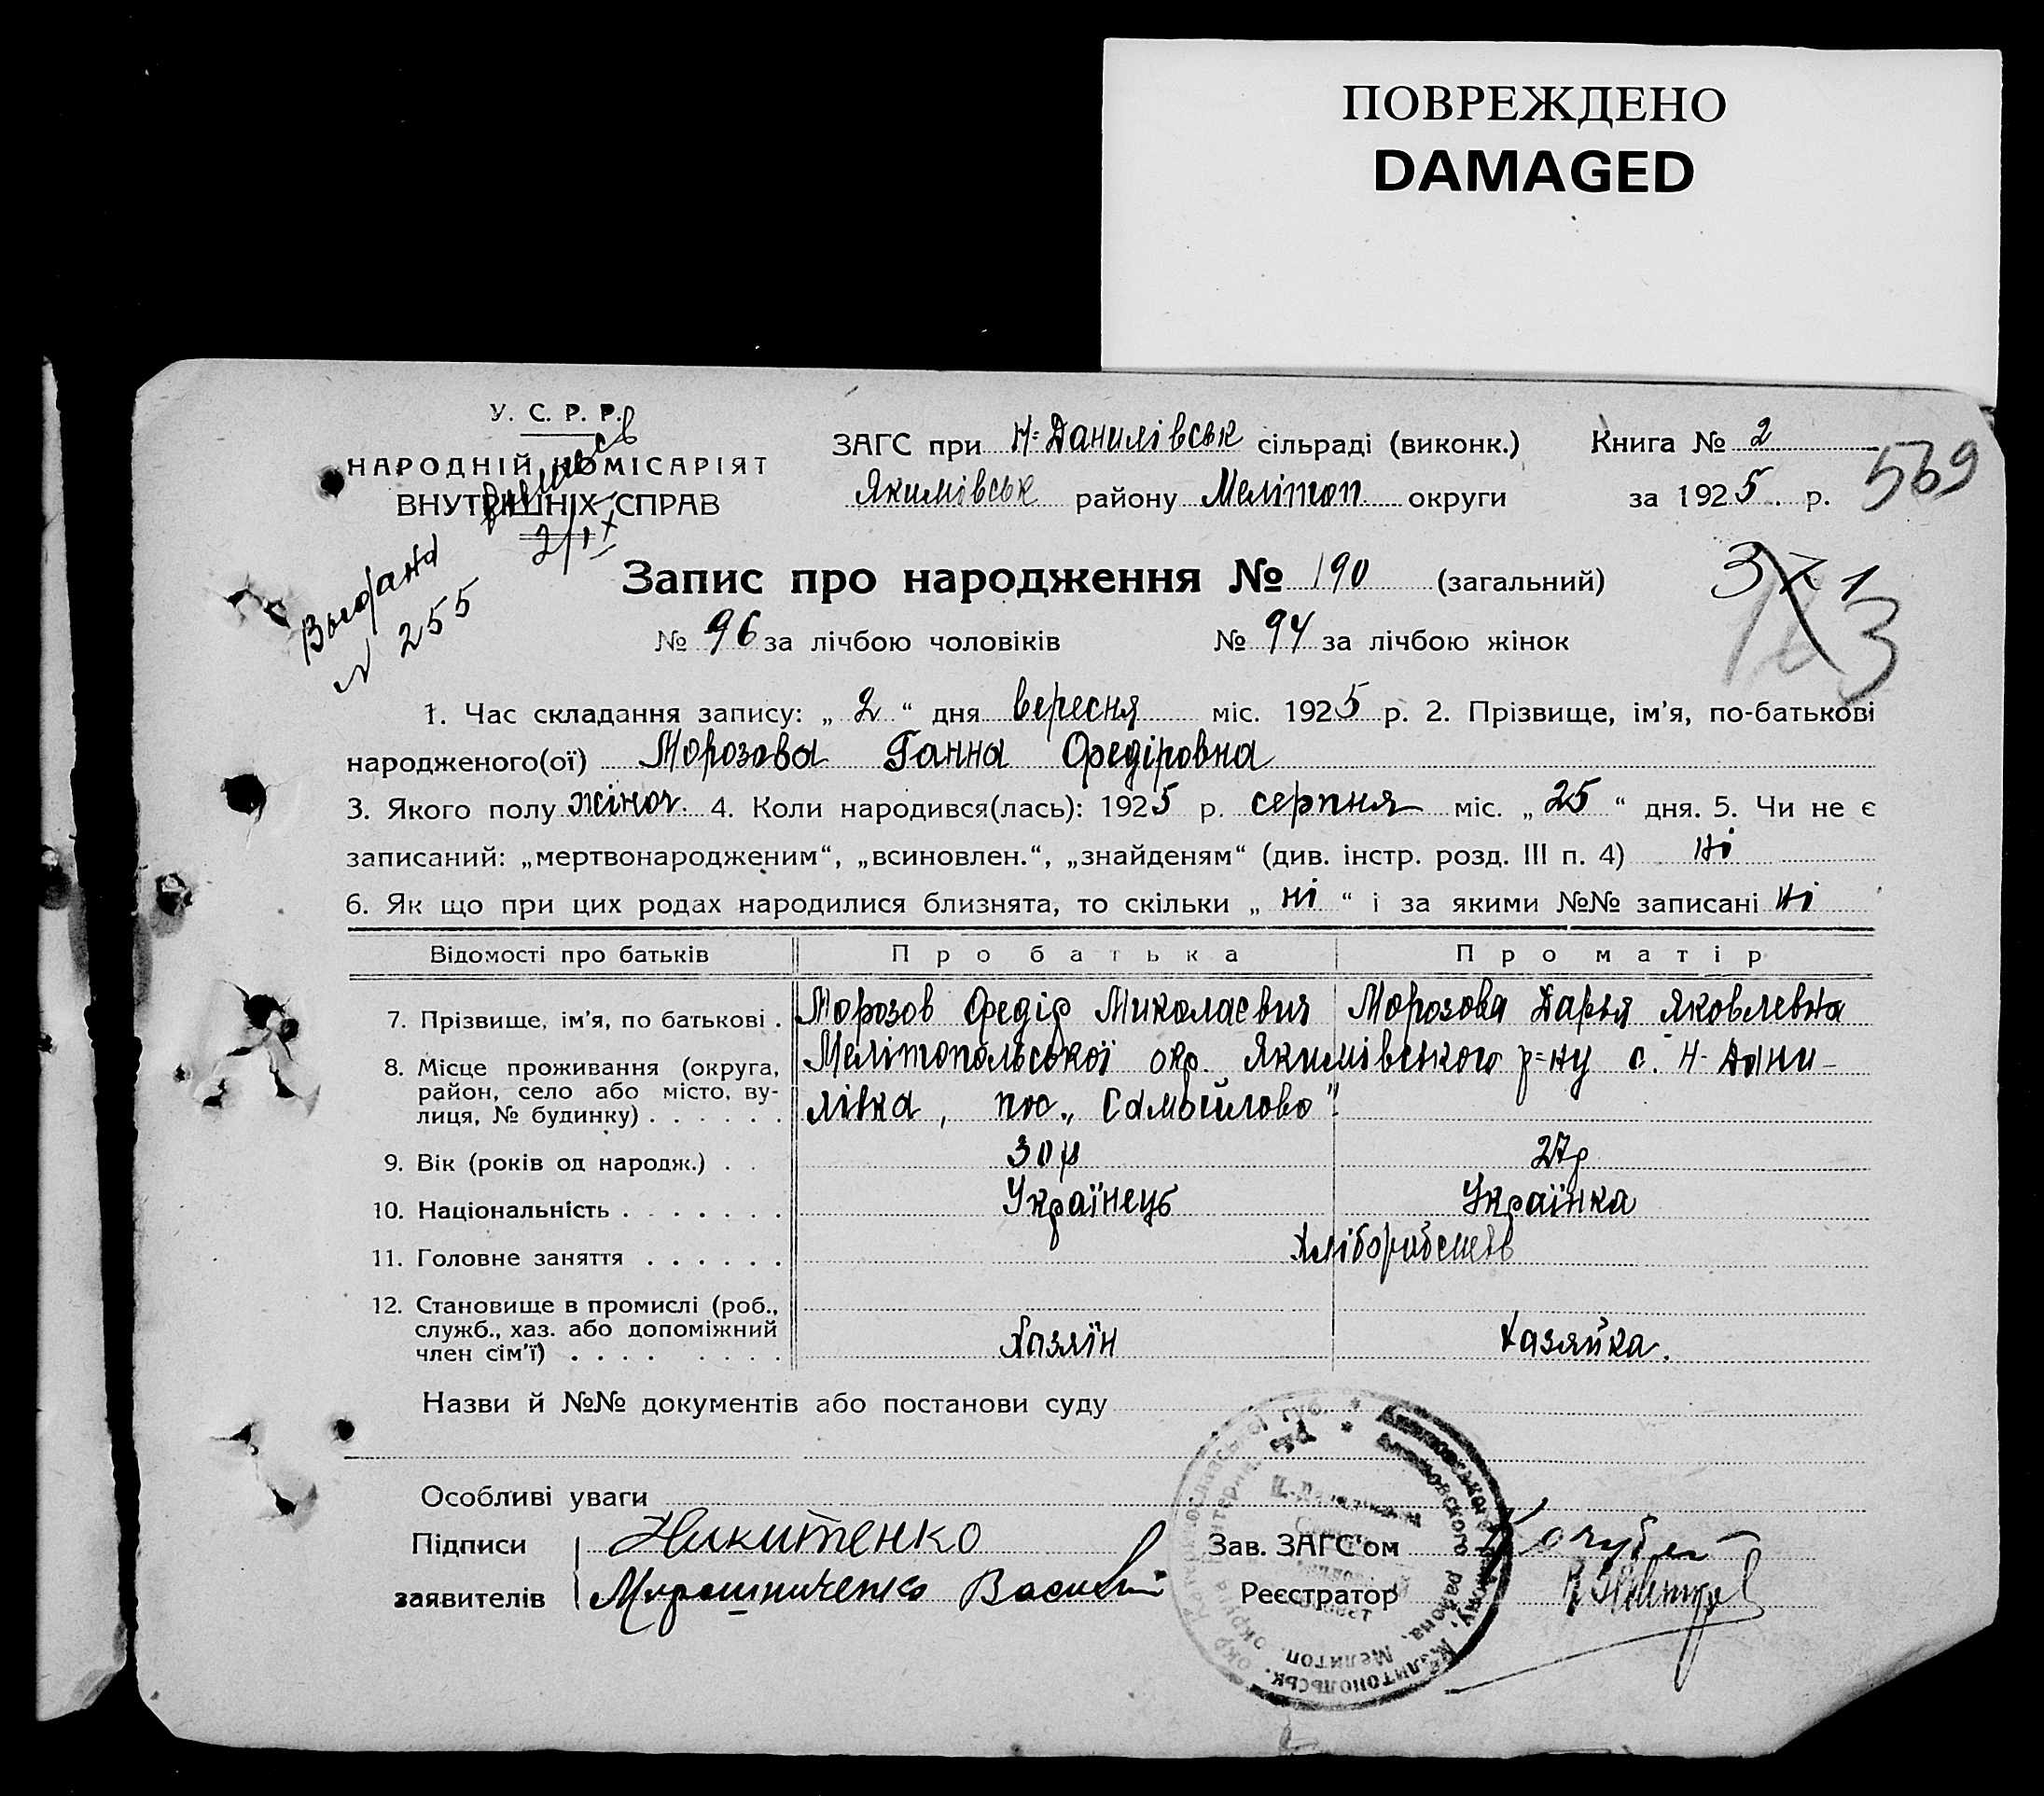 ПОВРЕЖДЕНО
DAMAGED
У. С. Р. Р.
НАРОДНІЙ КОМІСАРІЯТ
ВНУТРІШНІХ СПРАВ
2/IX
Выдана
N 255
ЗАГС при Н-Данилівськ сільраді (виконк.) Книга № 2
Якимівськ району Меліտոп округи за 1925 р.
569
Запис про народження № 190 (загальний)
371
3
№ 96 за лічбою чоловіків № 94 за лічбою жінок
1. Час складання запису: „ 2 “ дня вересня міс. 1925 р. 2. Прізвище, ім’я, по-батькові
народженого(ої) Морозова Ганна Федіровна
3. Якого полу жіноч. 4. Коли народився(лась): 1925 р. серпня міс. „ 25 “ дня. 5. Чи не є
записаний: „мертвонародженим“, „всиновлен.“, „знайденям“ (див. інстр. розд. III п. 4) ні
6. Як що при цих родах народилися близнята, то скільки „ ні “ і за якими №№ записані ні
Відомості про батьків Про батька Про матір
7. Прізвище, ім’я, по батькові . Морозов Федір Миколаєвич Морозова Дарья Яковлевна
8. Місце проживання (округа, Мелітопольської окр. Якимівського р-ну с. Н-Дани-
район, село або місто, ву-
лиця, № будинку) . . . . . . лівка, пос. „Самойлово“
9. Вік (років од народж.) . . 30 р 27 р
10. Національність . . . . . . . Українець Українка
11. Головне заняття . . . . . .
12. Становище в промислі (роб.,
служб., хаз. або допоміжний
член сім’ї) . . . . . . . . Хазяїн Хазяйка.
Назви й №№ документів або постанови суду
Особливі уваги
Підписи Никитенко Зав. ЗАГС’ом Кочубей
заявителів Мирошниченко Василий Реєстратор